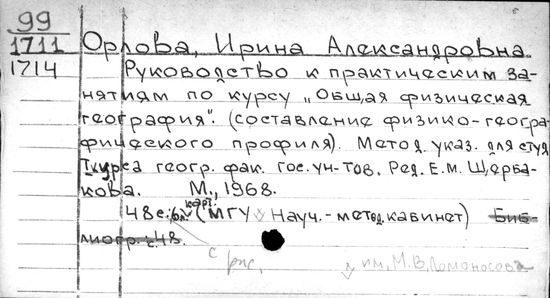 99
1711
1714
Орлова, Ирина Александровна.
Руководство к практическим за-
нятиям по курсу „Общая физическая
география". (составление физико-геогра-
фического профиля). Метод. указ. для студ.
I курса геогр. фак. гос. ун-тов. Ред. Е.М. Щерба-
кова. М., 1968.
карт.
48 с.; 6 л. (МГУ Науч.-метод. кабинет) Биб-
лиогр.: с. 48.
с рис.
им. М.В. Ломоносова